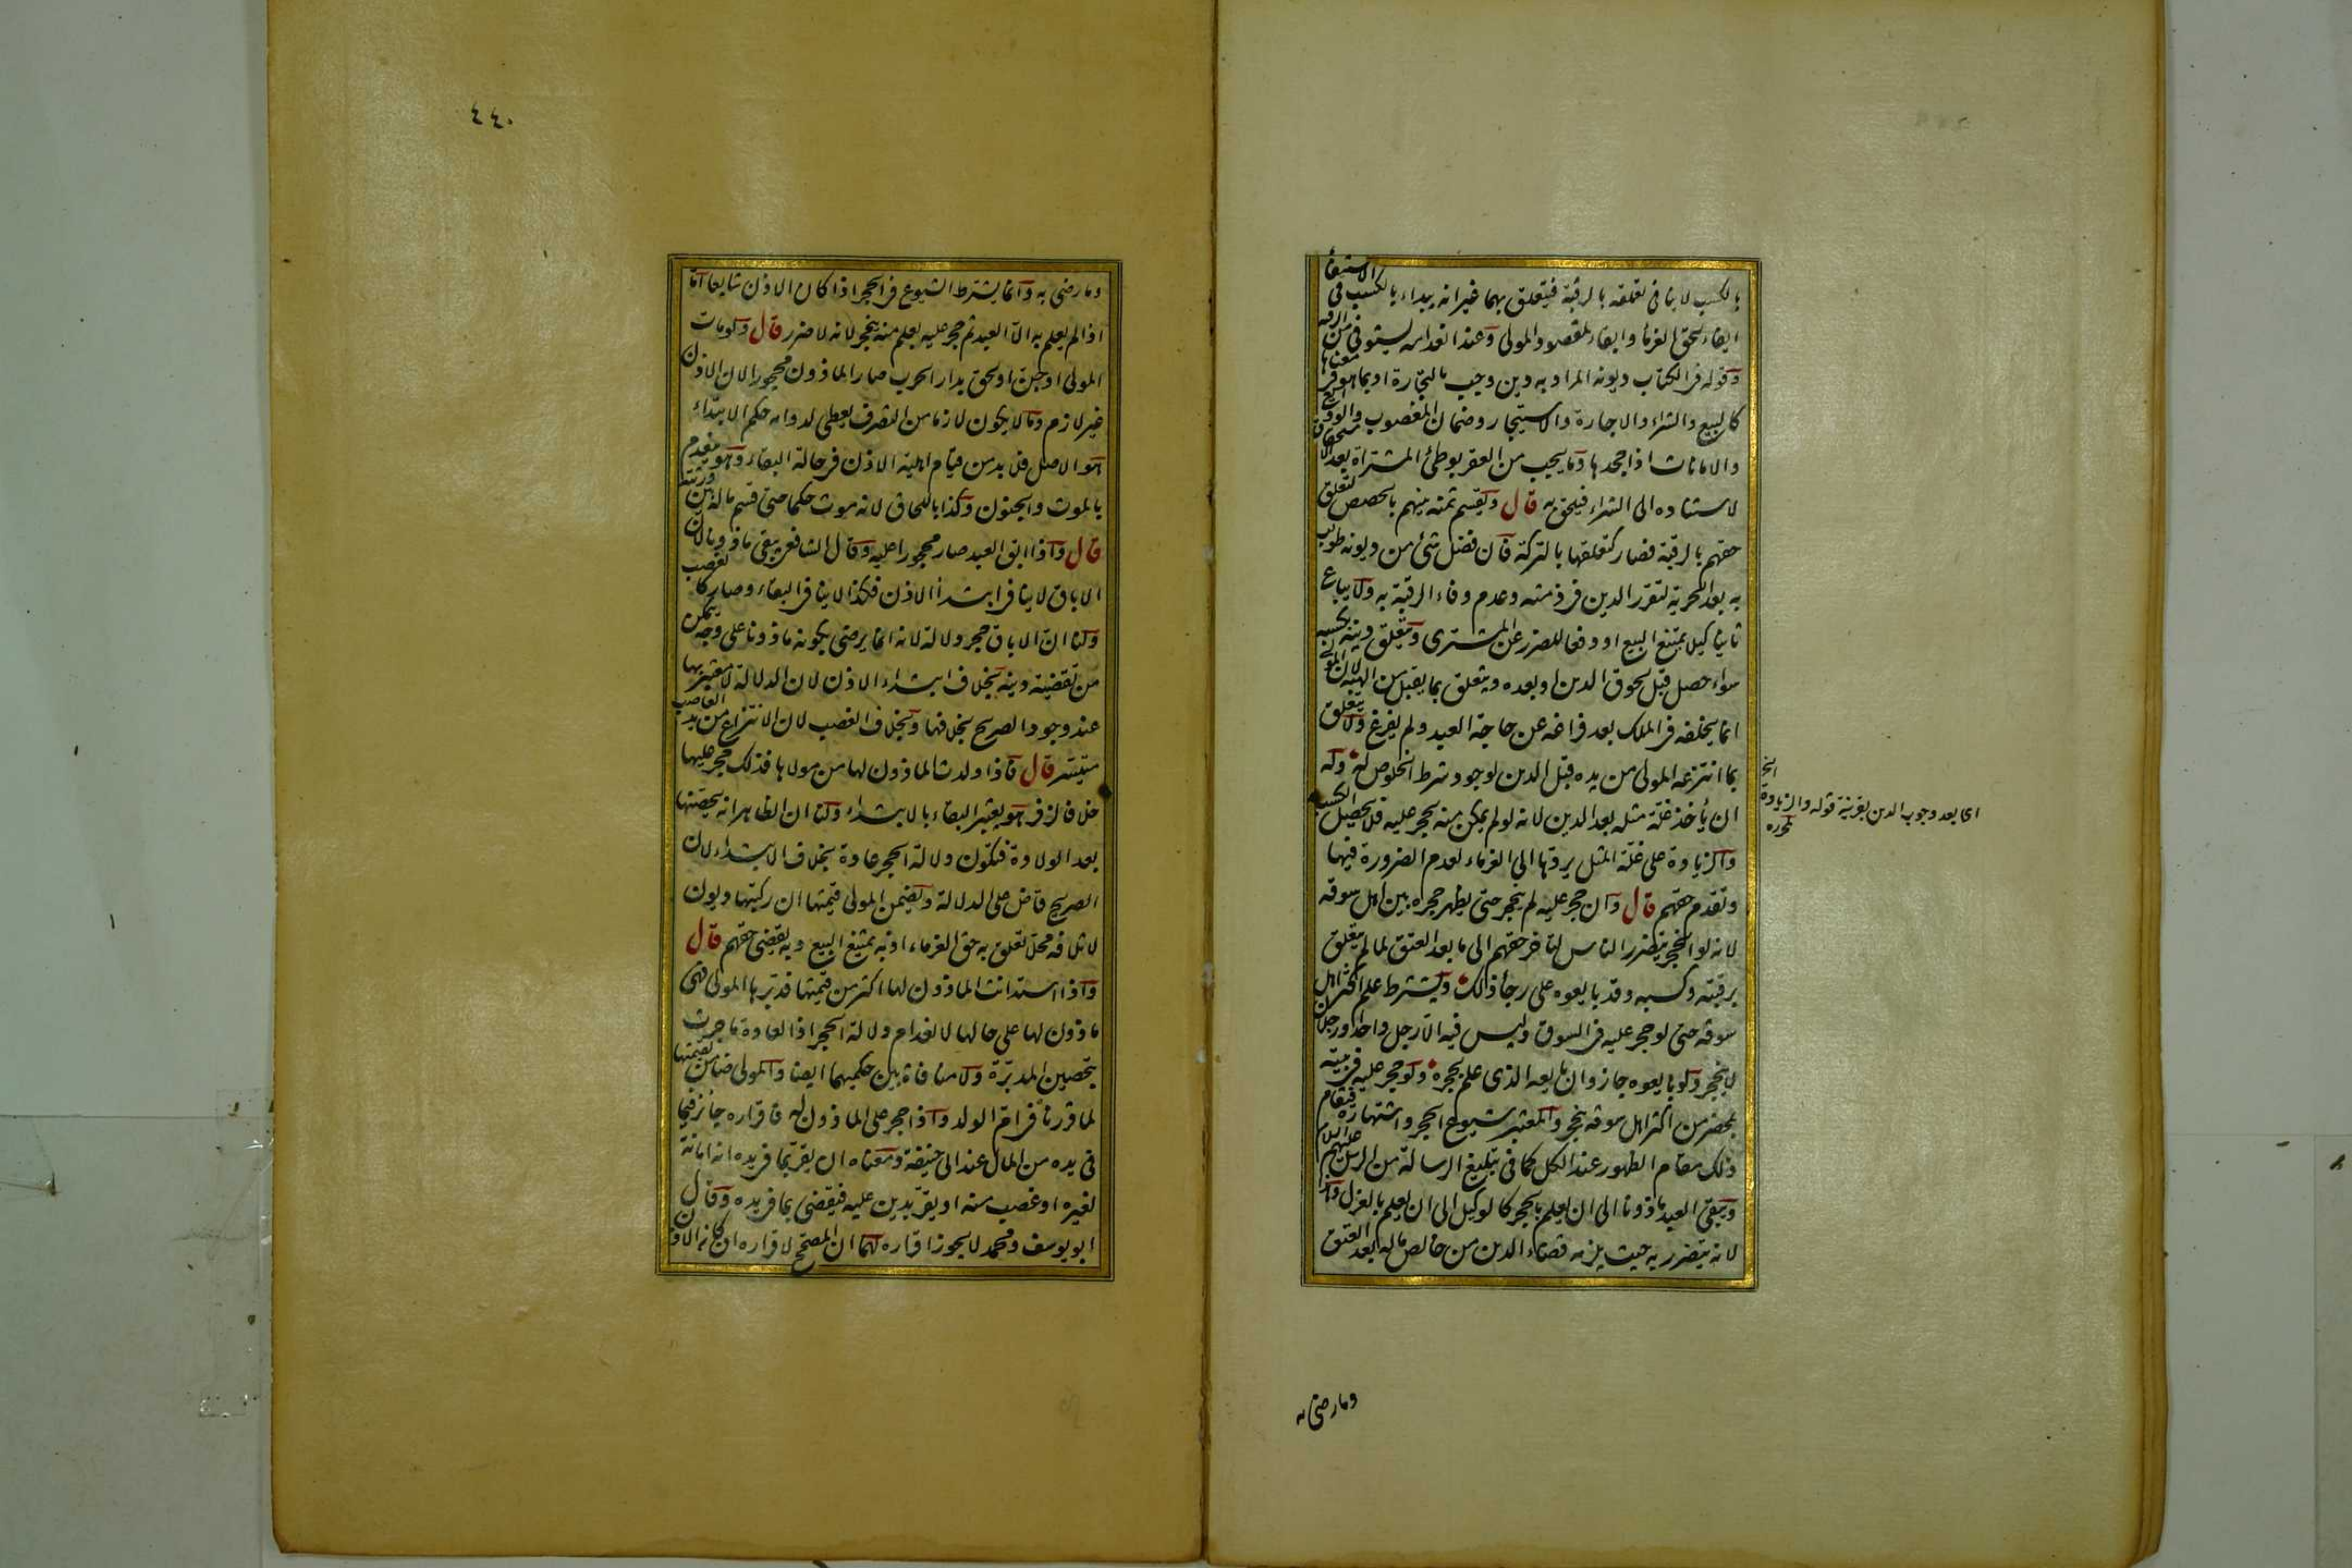 بالكسب لا ينافي تعلقه بالرقبة فيتعلق بهما غير انه يبداء بالكسب في الاستيفاء
ايفاء لحق الغرماء وابقاء لمقصود المولى وعند انعدامه يستوفى من الرقبة
وقوله في الكتاب ديونه المراد به دين وجب بالتجارة او بما هو في معناها
كالبيع والشراء والاجارة والاستيجار وضمان المغصوب والودائع
والامانات اذا جحدها وما يجب من العقر بوطئ المشتراة بعد الاستحقاق
لاستناده الى الشراء فيلحق به قال ويقسم ثمنه بينهم بالحصص لتعلق
حقهم بالرقبة فصار كتعلقها بالتركة فان فضل شئ من ديونه طولب
به بعد الحرية لتقرر الدين في ذمته وعدم وفاء الرقبة به ولا يباع
ثانيا كيلا يمتنع البيع او دفعا للضرر عن المشترى ويتعلق دينه بكسبه
سواء حصل قبل لحوق الدين او بعده ويتعلق بما يقبل من الهبة لان المولى
انما يخلفه في الملك بعد فراغه عن حاجة العبد ولم يفرغ ولا يتعلق
بما انتزعه المولى من يده قبل الدين لوجود شرط الخلوص له وله
ان يأخذ غلة مثله بعد الدين لانه لو لم يمكن منه يحجر عليه فلا يحصل الكسب
والزيادة على غلة المثل يردها الى الغرماء لعدم الضرورة فيها
وتقدم حقهم قال وان حجر عليه لم ينحجر حتى يظهر حجره بين اهل سوقه
لانه لو انحجر يتضرر الناس لتأخر حقهم الى ما بعد العتق لما لم يتعلق
برقبته وكسبه وقد بايعوه على رجاء ذلك ويشترط علم اكثر اهل
سوقه حتى لو حجر عليه في السوق وليس فيه الا رجل واحد او رجلان
لا ينحجر ولو بايعوه جاز وان بايعه الذى علم بحجره ولو حجر عليه في بيته
بمحضر من اكثر اهل سوقه ينحجر والمعتبر شيوع الحجر واشتهاره فيقام
ذلك مقام الظهور عند الكل كما في تبليغ الرسالة من الرسل عليهم السلام
ويبقى العبد ماذونا الى ان يعلم بالحجر كالوكيل الى ان يعلم بالعزل وهذا
لانه يتضرر به حيث يلزمه قضاء الدين من خالص ماله بعد العتق
اى بعد وجوب الدين بقرينة قوله والزيادة
وما رضى به
٤٤٠
وما رضى به وانما يشترط الشيوع في الحجر اذا كان الاذن شايعا اما
اذا لم يعلم به الا العبد ثم حجر عليه بعلم منه ينحجر لانه لا ضرر قال ولو مات
المولى او جن او لحق بدار الحرب صار الماذون محجورا لان الاذن
غير لازم وما لا يكون لازما من التصرف يعطى لدوامه حكم الابتداء
هو الاصل فلا بد من قيام اهلية الاذن في حالة البقاء وهو ينعدم
بالموت والجنون وكذا باللحاق لانه موت حكما حتى قسم ماله بين ورثته
قال واذا ابق العبد صار محجورا عليه وقال الشافعى يبقى ماذونا لان
الاباق لا ينافي ابتداء الاذن فكذا لا ينافي البقاء وصار كالغصب
ولنا ان الاباق حجر دلالة لانه انما يرضى بكونه ماذونا على وجه يتمكن
من تقضية دينه بخلاف ابتداء الاذن لان الدلالة لا معتبر بها
عند وجود الصريح بخلافها وبخلاف الغصب لان الانتزاع من يد الغاصب
متيسر قال فاذا ولدت الماذون لها من مولاها فذلك حجر عليها
خلافا لزفر هو يعتبر البقاء بالابتداء ولنا ان الظاهر انه يحصنها
بعد الولادة فتكون دلالة الحجر عادة بخلاف الابتداء لان
الصريح قاض على الدلالة ويضمن المولى قيمتها ان ركبتها ديون
لاتلافه محلا تعلق به حق الغرماء اذ به يمتنع البيع وبه يقضى حقهم قال
واذا استدانت الماذون لها اكثر من قيمتها فدبرها المولى فهى
ماذون لها على حالها لانعدام دلالة الحجر اذ العادة ما جرت
بتحصين المدبرة ولا منافاة بين حكميهما ايضا والمولى ضامن لقيمتها
لما قررناه في ام الولد واذا حجر على الماذون له فاقراره جائز فيما
في يده من المال عند ابى حنيفة ومعناه ان يقر بما في يده انه امانة
لغيره او غصب منه او يقر بدين عليه فيقضى بما في يده وقال
ابو يوسف ومحمد لا يجوز اقراره لهما ان المصحح لاقراره ان كان الاذن